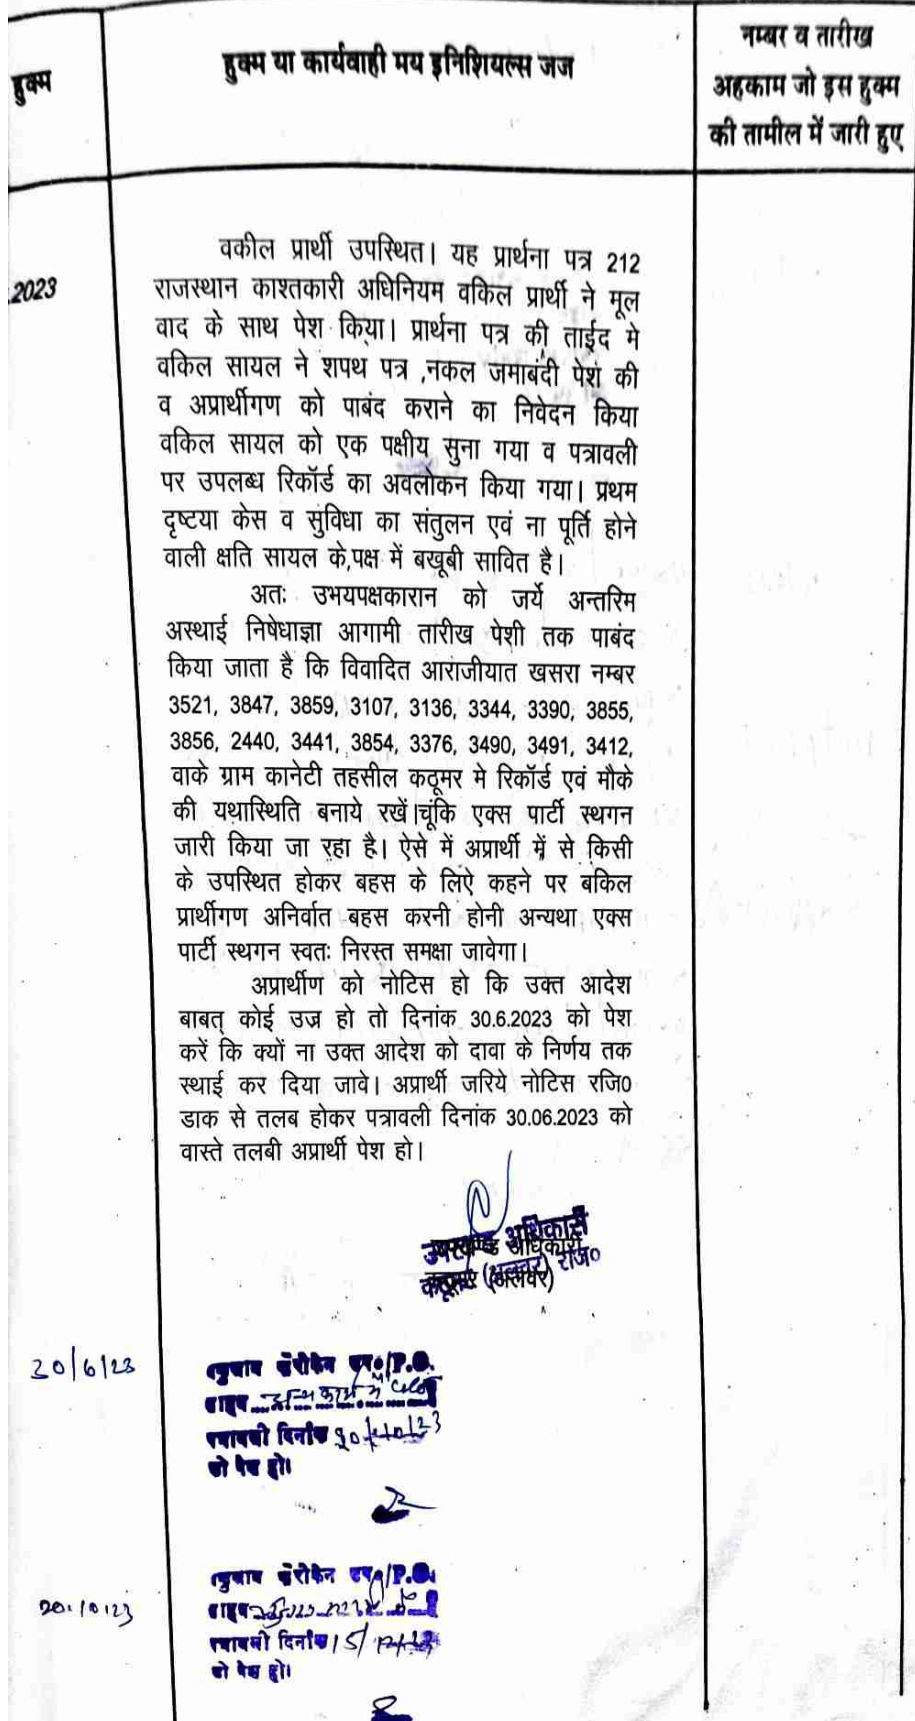 हुक्म
हुक्म या कार्यवाही मय इनिशियल्स जज
नम्बर व तारीख
अहकाम जो इस हुक्म
की तामील में जारी हुए
2023
वकील प्रार्थी उपस्थित। यह प्रार्थना पत्र 212
राजस्थान काश्तकारी अधिनियम वकिल प्रार्थी ने मूल
वाद के साथ पेश किया। प्रार्थना पत्र की ताईद मे
वकिल सायल ने शपथ पत्र ,नकल जमाबंदी पेश की
व अप्रार्थीगण को पाबंद कराने का निवेदन किया
वकिल सायल को एक पक्षीय सुना गया व पत्रावली
पर उपलब्ध रिकॉर्ड का अवलोकन किया गया। प्रथम
दृष्टया केस व सुविधा का संतुलन एवं ना पूर्ति होने
वाली क्षति सायल के,पक्ष में बखूबी सावित है।
अतः उभयपक्षकारान को जर्ये अन्तरिम
अस्थाई निषेधाज्ञा आगामी तारीख पेशी तक पाबंद
किया जाता है कि विवादित आराजीयात खसरा नम्बर
3521, 3847, 3859, 3107, 3136, 3344, 3390, 3855,
3856, 2440, 3441, 3854, 3376, 3490, 3491, 3412,
वाके ग्राम कानेटी तहसील कठूमर मे रिकॉर्ड एवं मौके
की यथास्थिति बनाये रखें।चूंकि एक्स पार्टी स्थगन
जारी किया जा रहा है। ऐसे में अप्रार्थी में से किसी
के उपस्थित होकर बहस के लिऐ कहने पर बकिल
प्रार्थीगण अनिर्वात बहस करनी होनी अन्यथा एक्स
पार्टी स्थगन स्वतः निरस्त समक्षा जावेगा।
अप्रार्थीण को नोटिस हो कि उक्त आदेश
बाबत् कोई उज्र हो तो दिनांक 30.6.2023 को पेश
करें कि क्यों ना उक्त आदेश को दावा के निर्णय तक
स्थाई कर दिया जावे। अप्रार्थी जरिये नोटिस रजि0
डाक से तलब होकर पत्रावली दिनांक 30.06.2023 को
वास्ते तलबी अप्रार्थी पेश हो।
उपखण्ड अधिकारी
उपखण्ड अधिकारी
कठूमर (अलवर) राज०
कठूमर (अलवर)
30/6/23
/P.O.
दिनांक 20/10/23
को पेश हो।
20.10.23
/P.O.
दिनांक 15/12/23
को पेश हो।